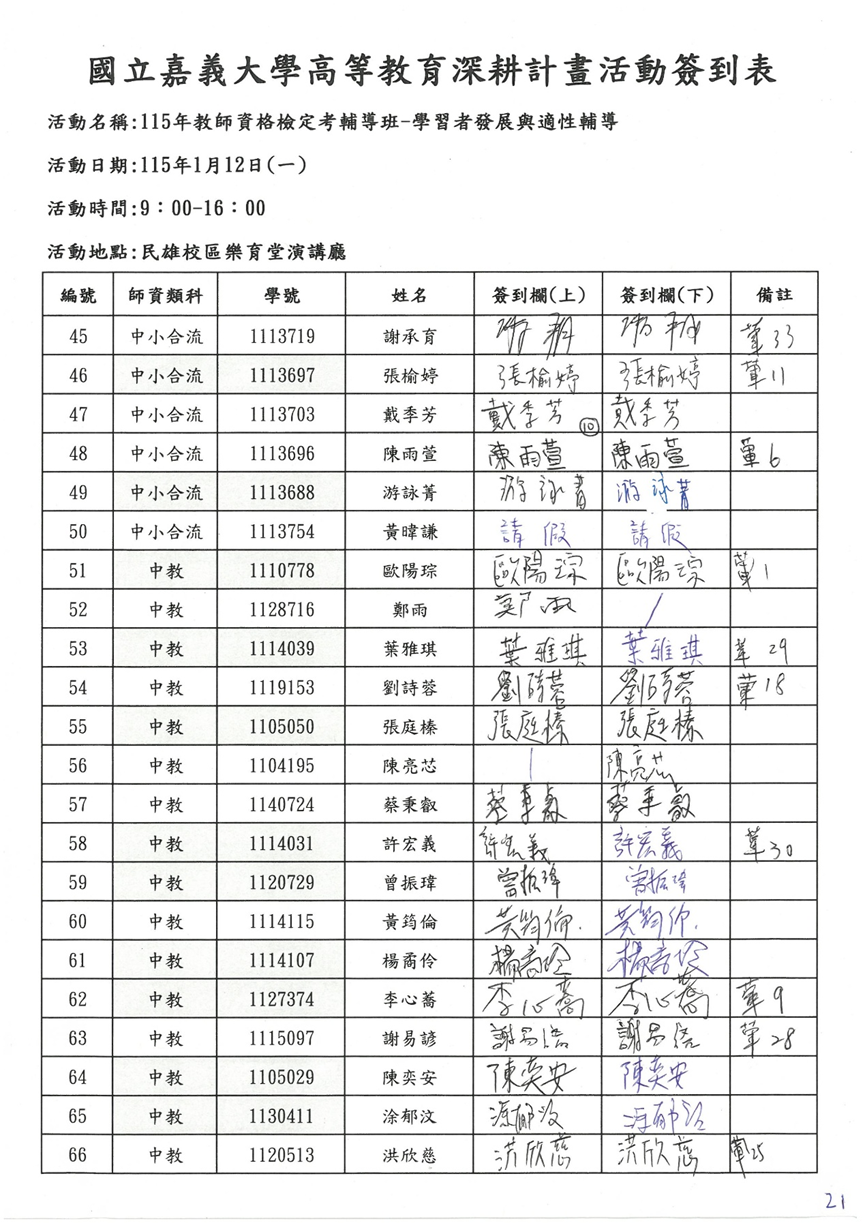 國立嘉義大學高等教育深耕計畫活動簽到表
活動名稱:115年教師資格檢定考輔導班-學習者發展與適性輔導
活動日期:115年1月12日(一)
活動時間:9：00-16：00
活動地點:民雄校區樂育堂演講廳
編號 師資類科 學號 姓名 簽到欄(上) 簽到欄(下) 備註
45 中小合流 1113719 謝承育 33
46 中小合流 1113697 張榆婷 張榆婷 張榆婷 葷11
47 中小合流 1113703 戴季芳 戴季芳 ⑩ 戴季芳
48 中小合流 1113696 陳雨萱 陳雨萱 陳雨萱 葷6
49 中小合流 1113688 游詠菁 游詠菁 游詠菁
50 中小合流 1113754 黃暐謙 請假 請假
51 中教 1110778 歐陽琮 歐陽琮 歐陽琮 葷1
52 中教 1128716 鄭雨 鄭雨 /
53 中教 1114039 葉雅琪 葉雅琪 葉雅琪 葷29
54 中教 1119153 劉詩蓉 劉詩蓉 劉詩蓉 葷18
55 中教 1105050 張庭榛 張庭榛 張庭榛
56 中教 1104195 陳亮芯 | 陳亮芯
57 中教 1140724 蔡秉叡 蔡秉叡 蔡秉叡
58 中教 1114031 許宏義 許宏義 許宏義 葷30
59 中教 1120729 曾振瑋 曾振瑋 曾振瑋
60 中教 1114115 黃筠倫 黃筠倫. 黃筠倫.
61 中教 1114107 楊喬伶 楊喬伶 楊喬伶
62 中教 1127374 李心蕎 李心蕎 李心蕎 葷9
63 中教 1115097 謝易諺 謝易諺 謝易諺 葷28
64 中教 1105029 陳奕安 陳奕安 陳奕安
65 中教 1130411 涂郁汶 涂郁汶 涂郁汶
66 中教 1120513 洪欣慈 洪欣慈 洪欣慈 葷25
21